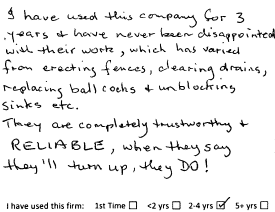 I have used this company for 3
years & have never been disappointed
with their work, which has varied
from erecting fences, clearing drains,
replacing ball cocks & unblocking
sinks etc.
They are completely trustworthy &
RELIABLE, when they say
they'll turn up, they DO!
I have used this firm: 1st Time ☐ <2 yrs ☐ 2-4 yrs ☑ 5+ yrs ☐